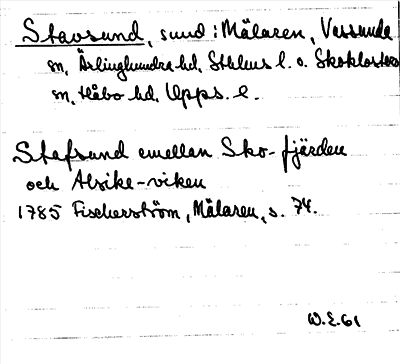 Stavsund, sund i Mälaren, Vassunda
sn, Ärlinghundra hd, Sthlms l. o. Skoklosters
sn, Håbo hd, Upps. l.
Stafsund emellan Sko-fjärden
och Alsike-viken
1785 Fischerström, Mälaren, s. 74.
W.E. 61